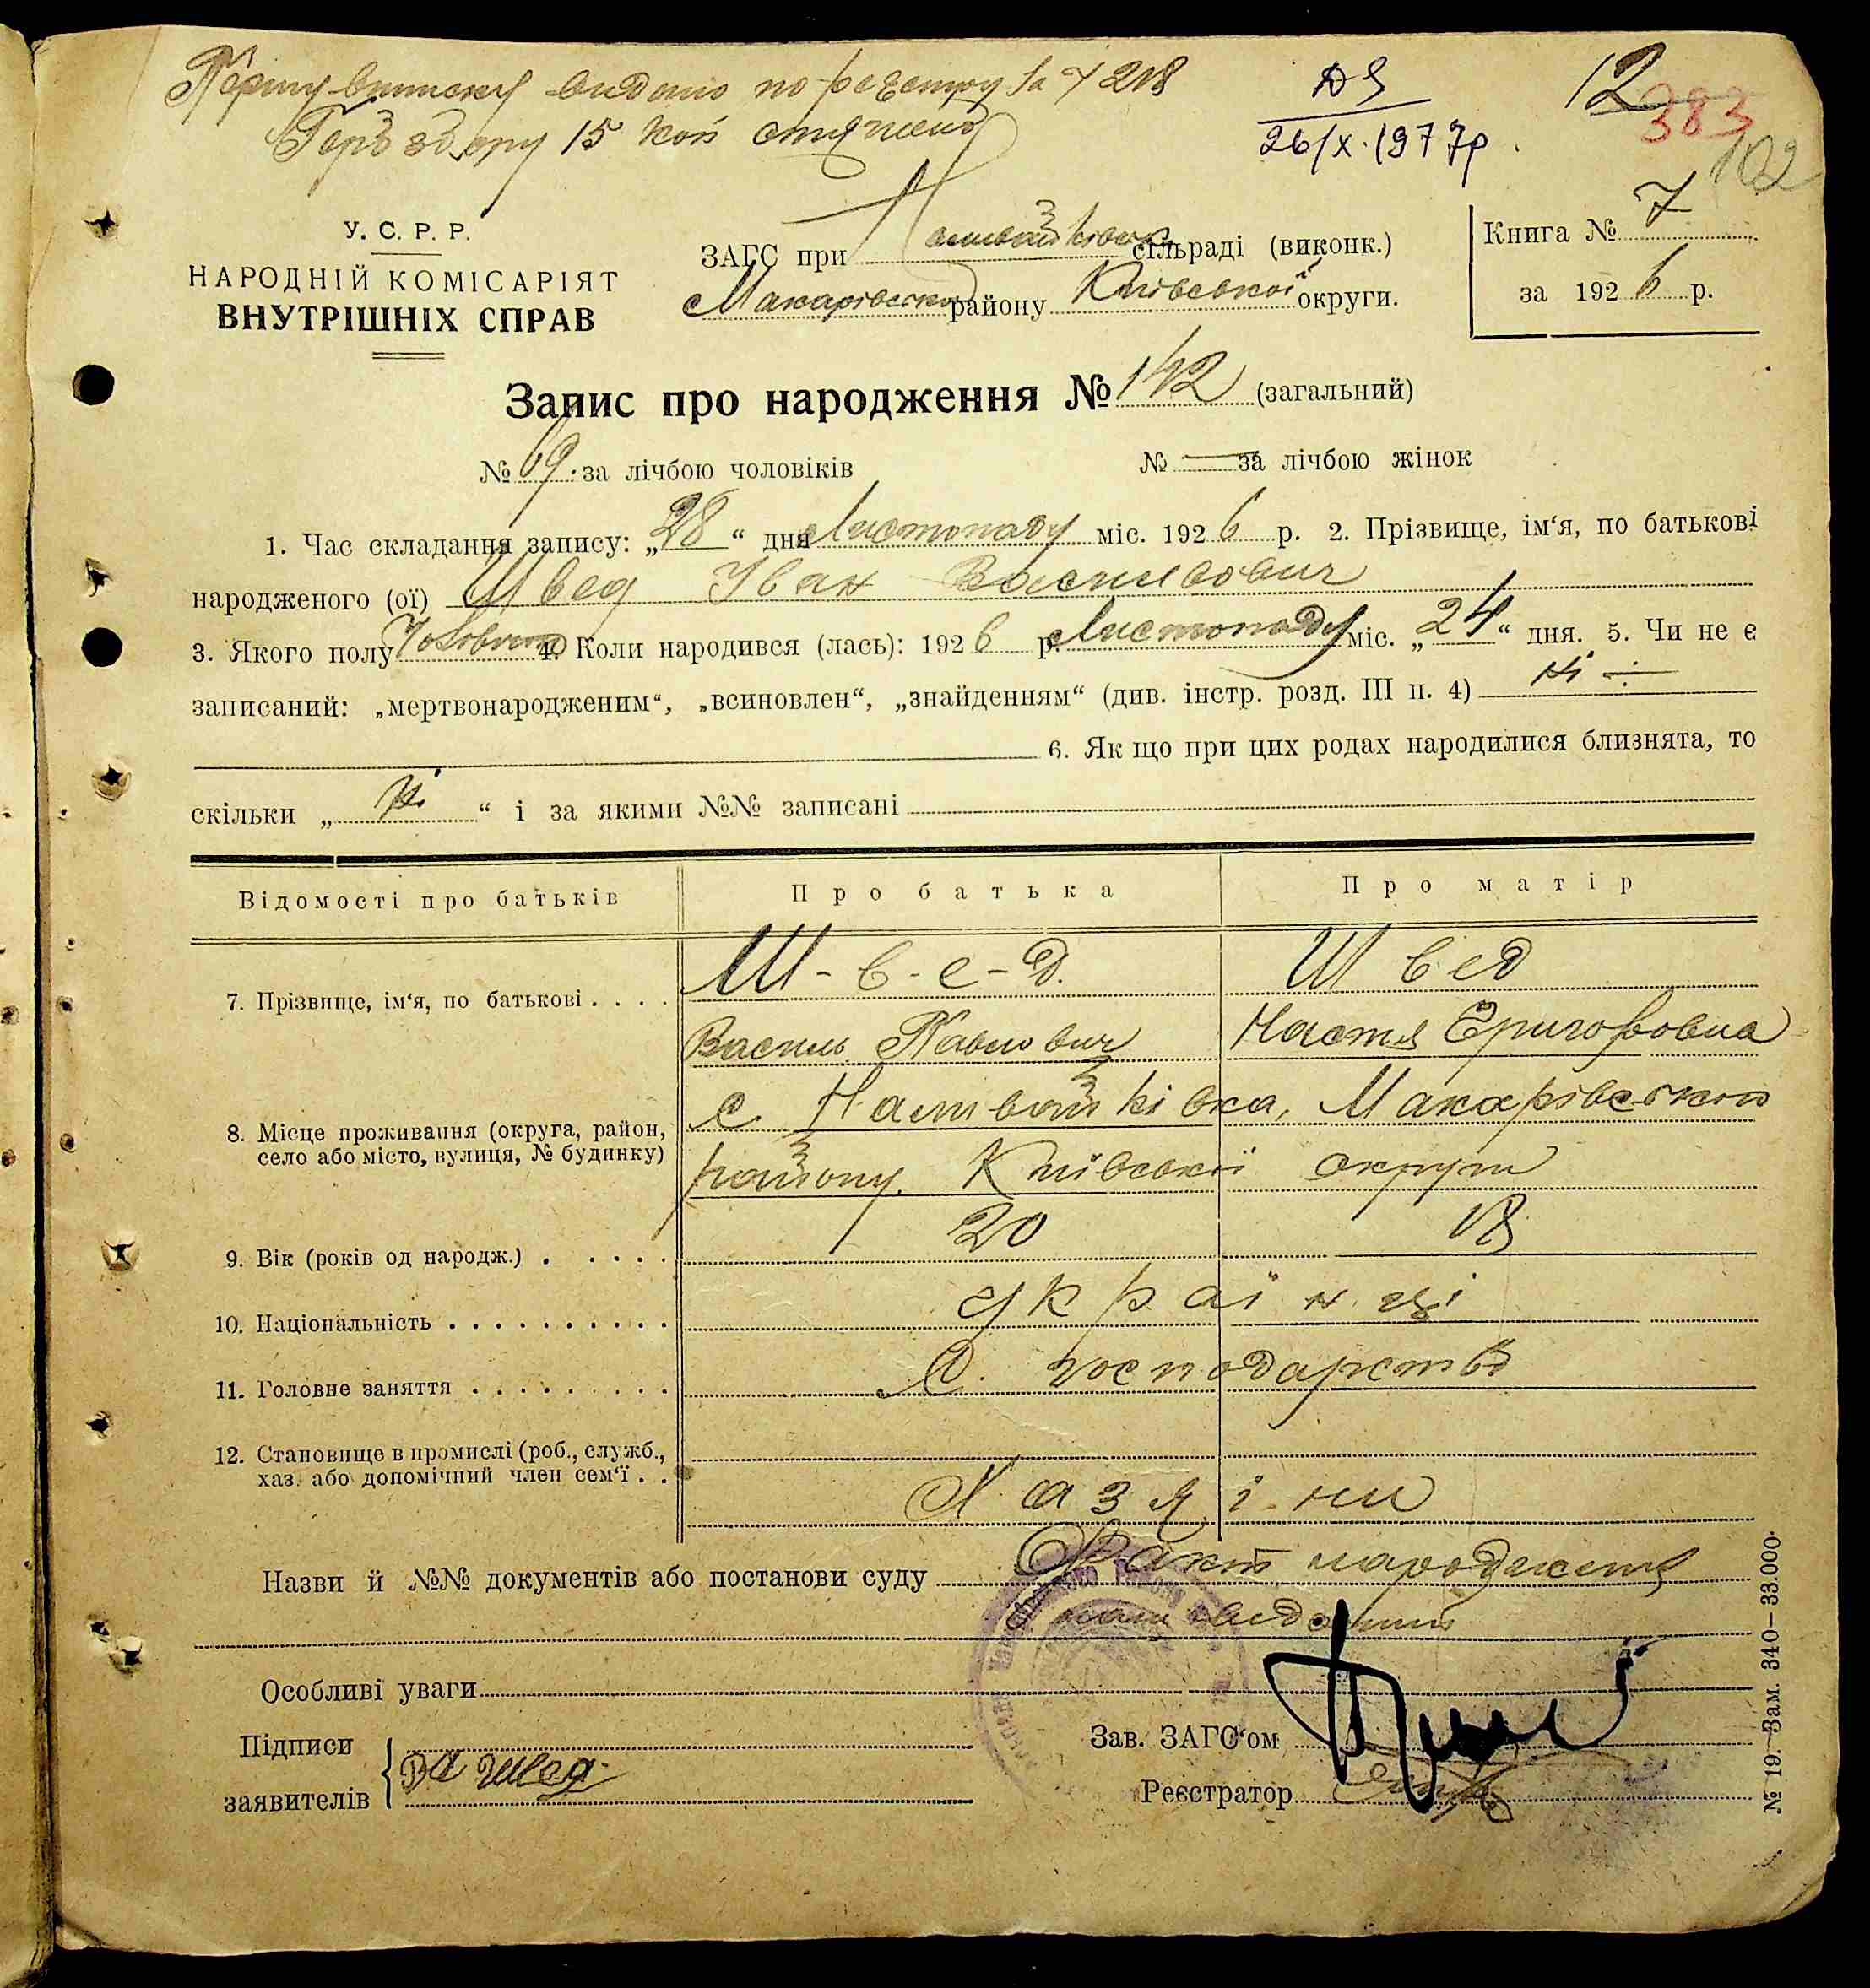 Першу виписку видано по реєстру за № 218
Герб збору 15 коп стягнено
ДЗ
26/X.1977р.
12
383
102
У. С. Р. Р.
НАРОДНІЙ КОМІСАРІЯТ
ВНУТРІШНІХ СПРАВ
ЗАГС при Наливайківськ сільраді (виконк.)
Макарівського району Київської округи.
Книга № 7
за 1926 р.
Запис про народження № 142 (загальний)
№ 69. за лічбою чоловіків № — за лічбою жінок
1. Час складання запису: „28“ дня Листопаду міс. 1926 р. 2. Прізвище, ім‘я, по батькові
народженого (ої) Швед Іван Васильович
3. Якого полу Чоловічого 4. Коли народився (лась): 1926 р. Листопаду міс. „24“ дня. 5. Чи не є
записаний: „мертвонародженим“, „всиновлен“, „знайденням“ (див. інстр. розд. III п. 4) ні —
6. Як що при цих родах народилися близнята, то
скільки „ ні “ і за якими №№ записані
Відомості про батьків Про батька Про матір
7. Прізвище, ім‘я, по батькові . . . . Ш-в-е-д. Швед
Василь Павлович Настя Григоровна
8. Місце проживання (округа, район, село або місто, вулиця, № будинку) с Наливайківка, Макарівського
району Київської округи
9. Вік (років од народж.) . . . . . 20 18
10. Національність . . . . . . . . . . українці
11. Головне заняття . . . . . . . . . С. господарство
12. Становище в промислі (роб., служб.,
хаз. або допомічний член сем‘ї . . Хазяіни
Назви й №№ документів або постанови суду Факт народження
нам відомий
Особливі уваги
Підписи
заявителів
Зав. ЗАГС‘ом
Реєстратор
ВП Швед
№ 19. Зам. 340—33.000.